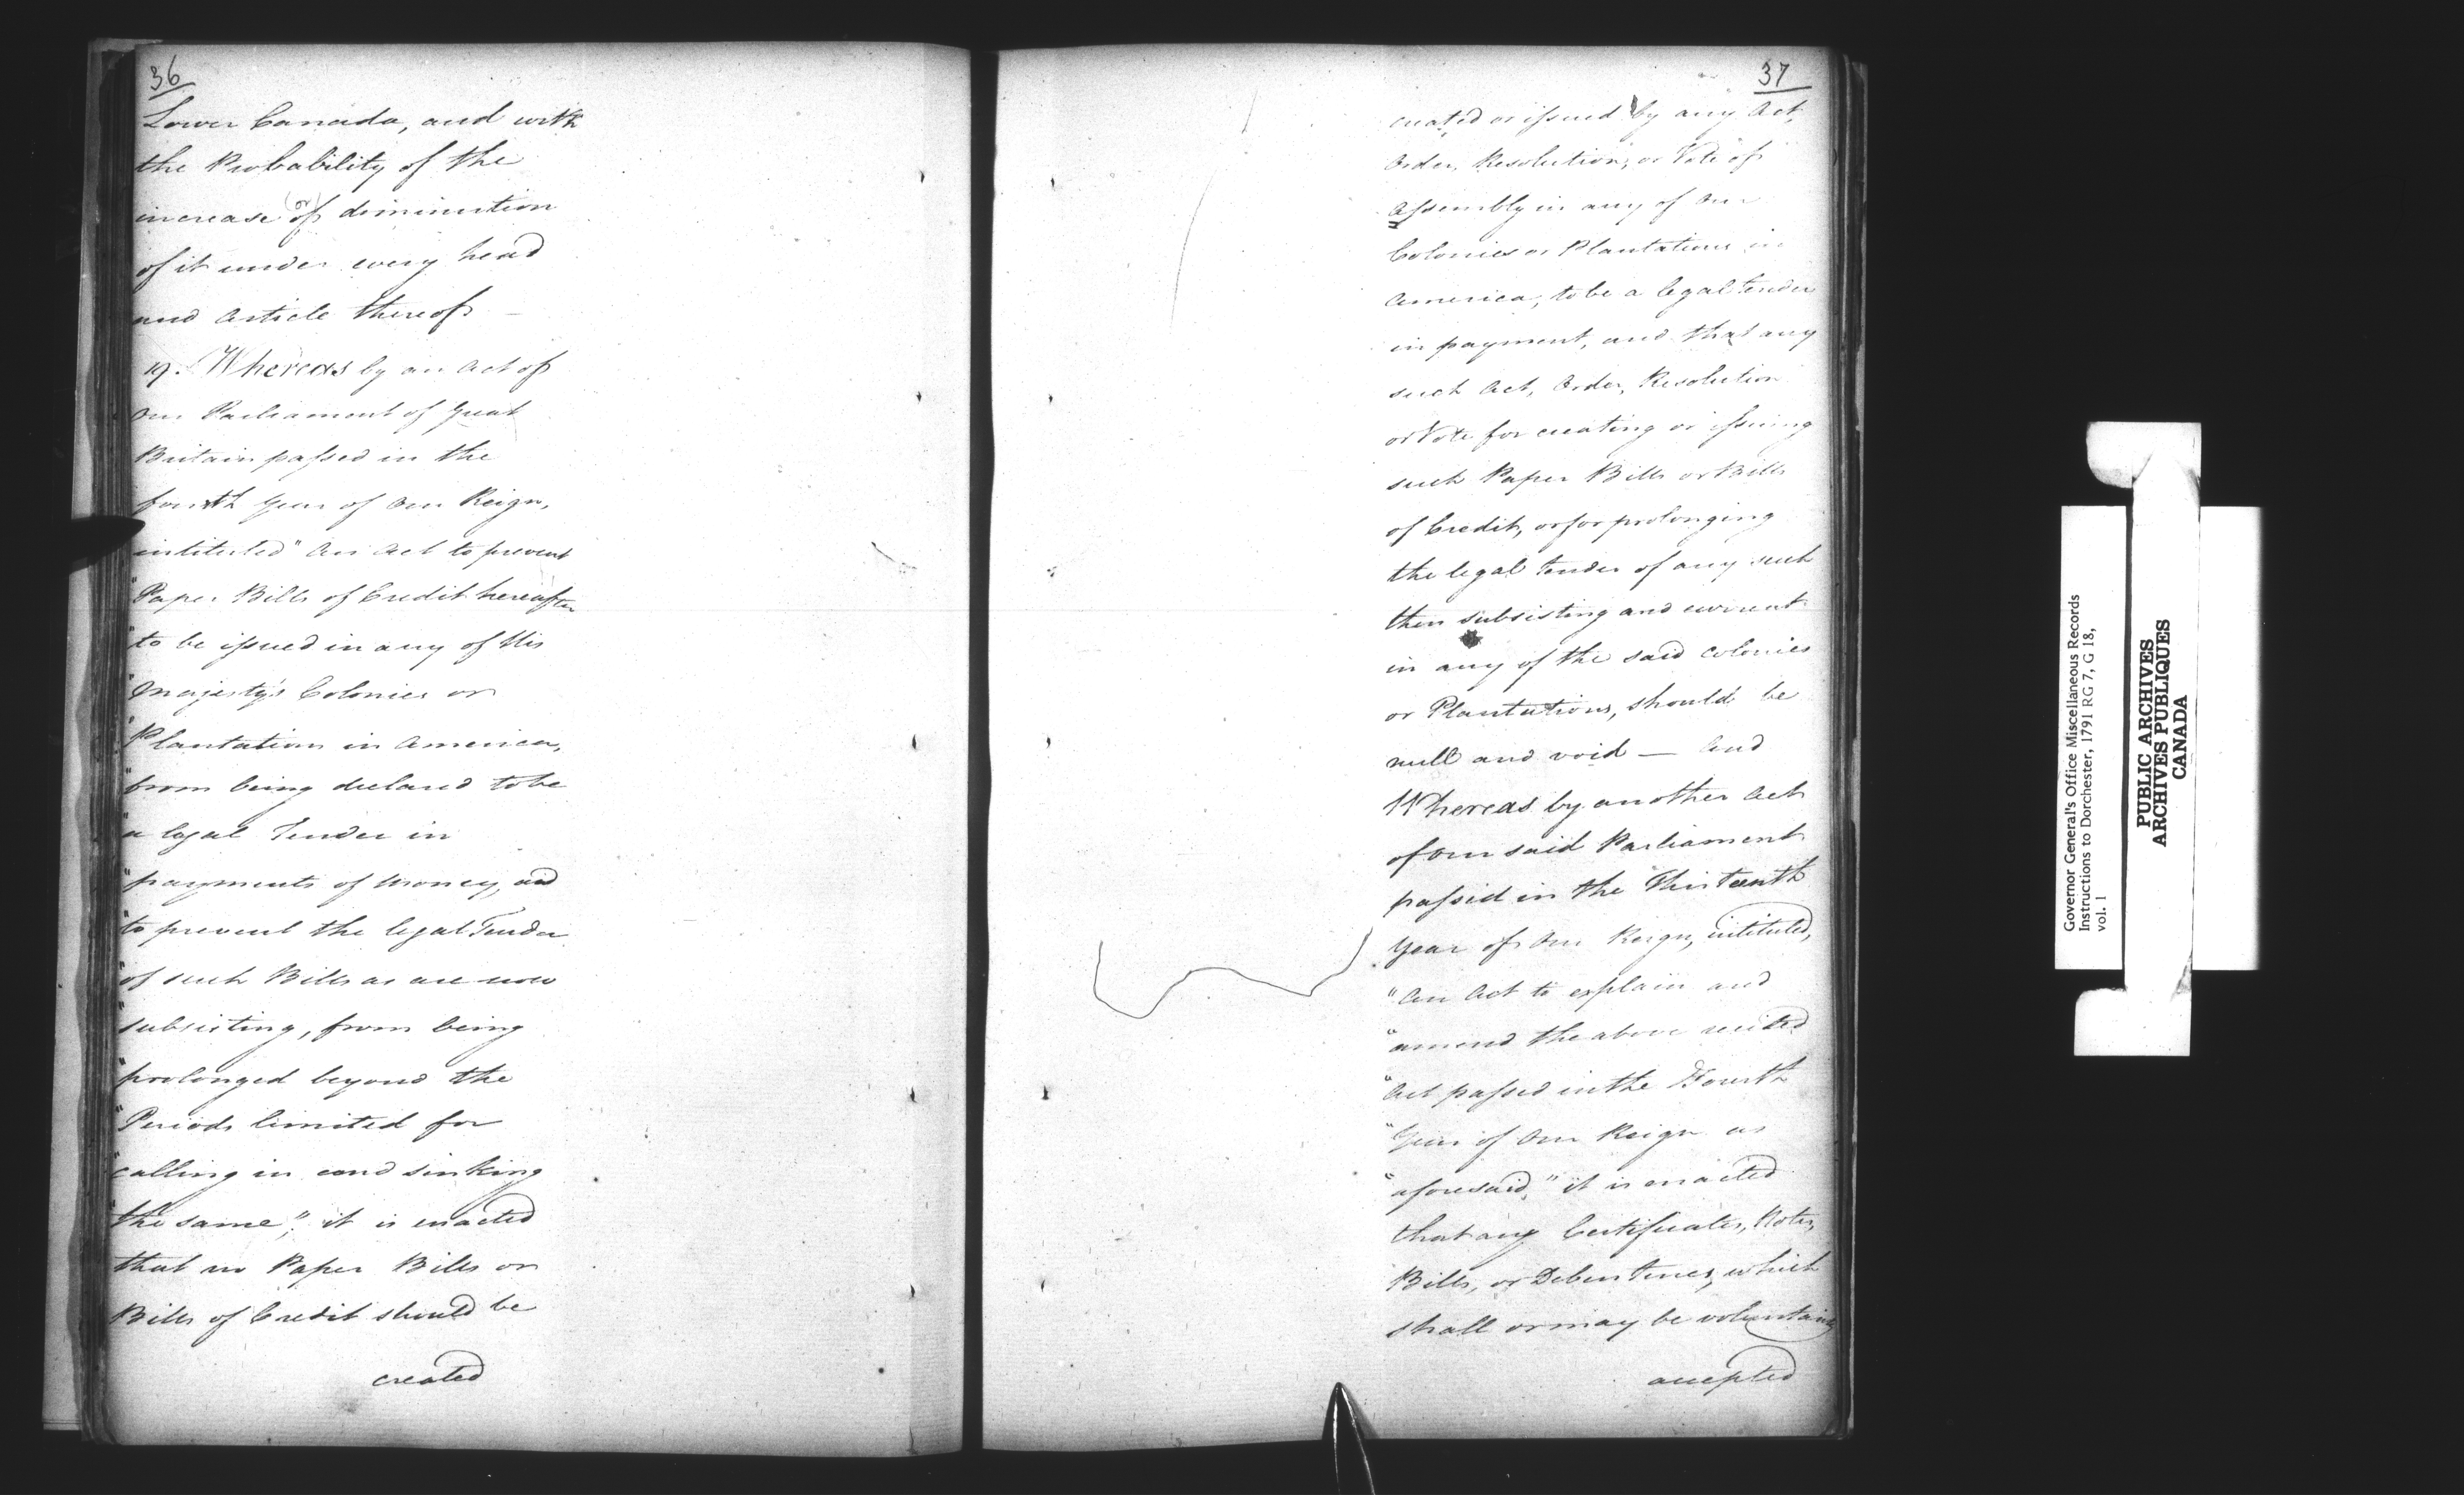 36
Lower Canada, and with
the Probability of the
increase (or) of diminution
of it under every head
and Article thereof
19. Whereas by an Act of
our Parliament of Great
Britain passed in the
fourth Year of Our Reign,
intituled "An Act to prevent
"Paper Bills of Credit hereafter
"to be issued in any of His
"Majesty's Colonies or
"Plantations in America,
"from being declared to be
"a legal Tender in
"payments of Money, and
"to prevent the legal Tender
"of such Bills as are now
"subsisting, from being
"prolonged beyond the
"Periods limited for
"calling in and sinking
"the same", it is enacted
that no Paper Bills or
Bills of Credit should be
created
37
created or issued by any Act,
Order, Resolution, or Vote of
Assembly in any of Our
Colonies or Plantations in
America, to be a legal tender
in payment, and that any
such Act, Order, Resolution
or Vote for creating or issuing
such Paper Bills or Bills
of Credit, or for prolonging
the legal tender of any such
then subsisting and current
in any of the said Colonies
or Plantations, should be
null and void — And
Whereas by another Act
of Our said Parliament
passed in the Thirteenth
Year of Our Reign, intituled,
"An Act to explain and
"amend the above recited
"Act passed in the Fourth
"Year of Our Reign as
"aforesaid," it is enacted
that any Certificates, Notes,
Bills, or Debentures, which
shall or may be voluntarily
accepted
Governor General's Office Miscellaneous Records
Instructions to Dorchester, 1791 RG 7, G 18,
vol. 1
PUBLIC ARCHIVES
ARCHIVES PUBLIQUES
CANADA